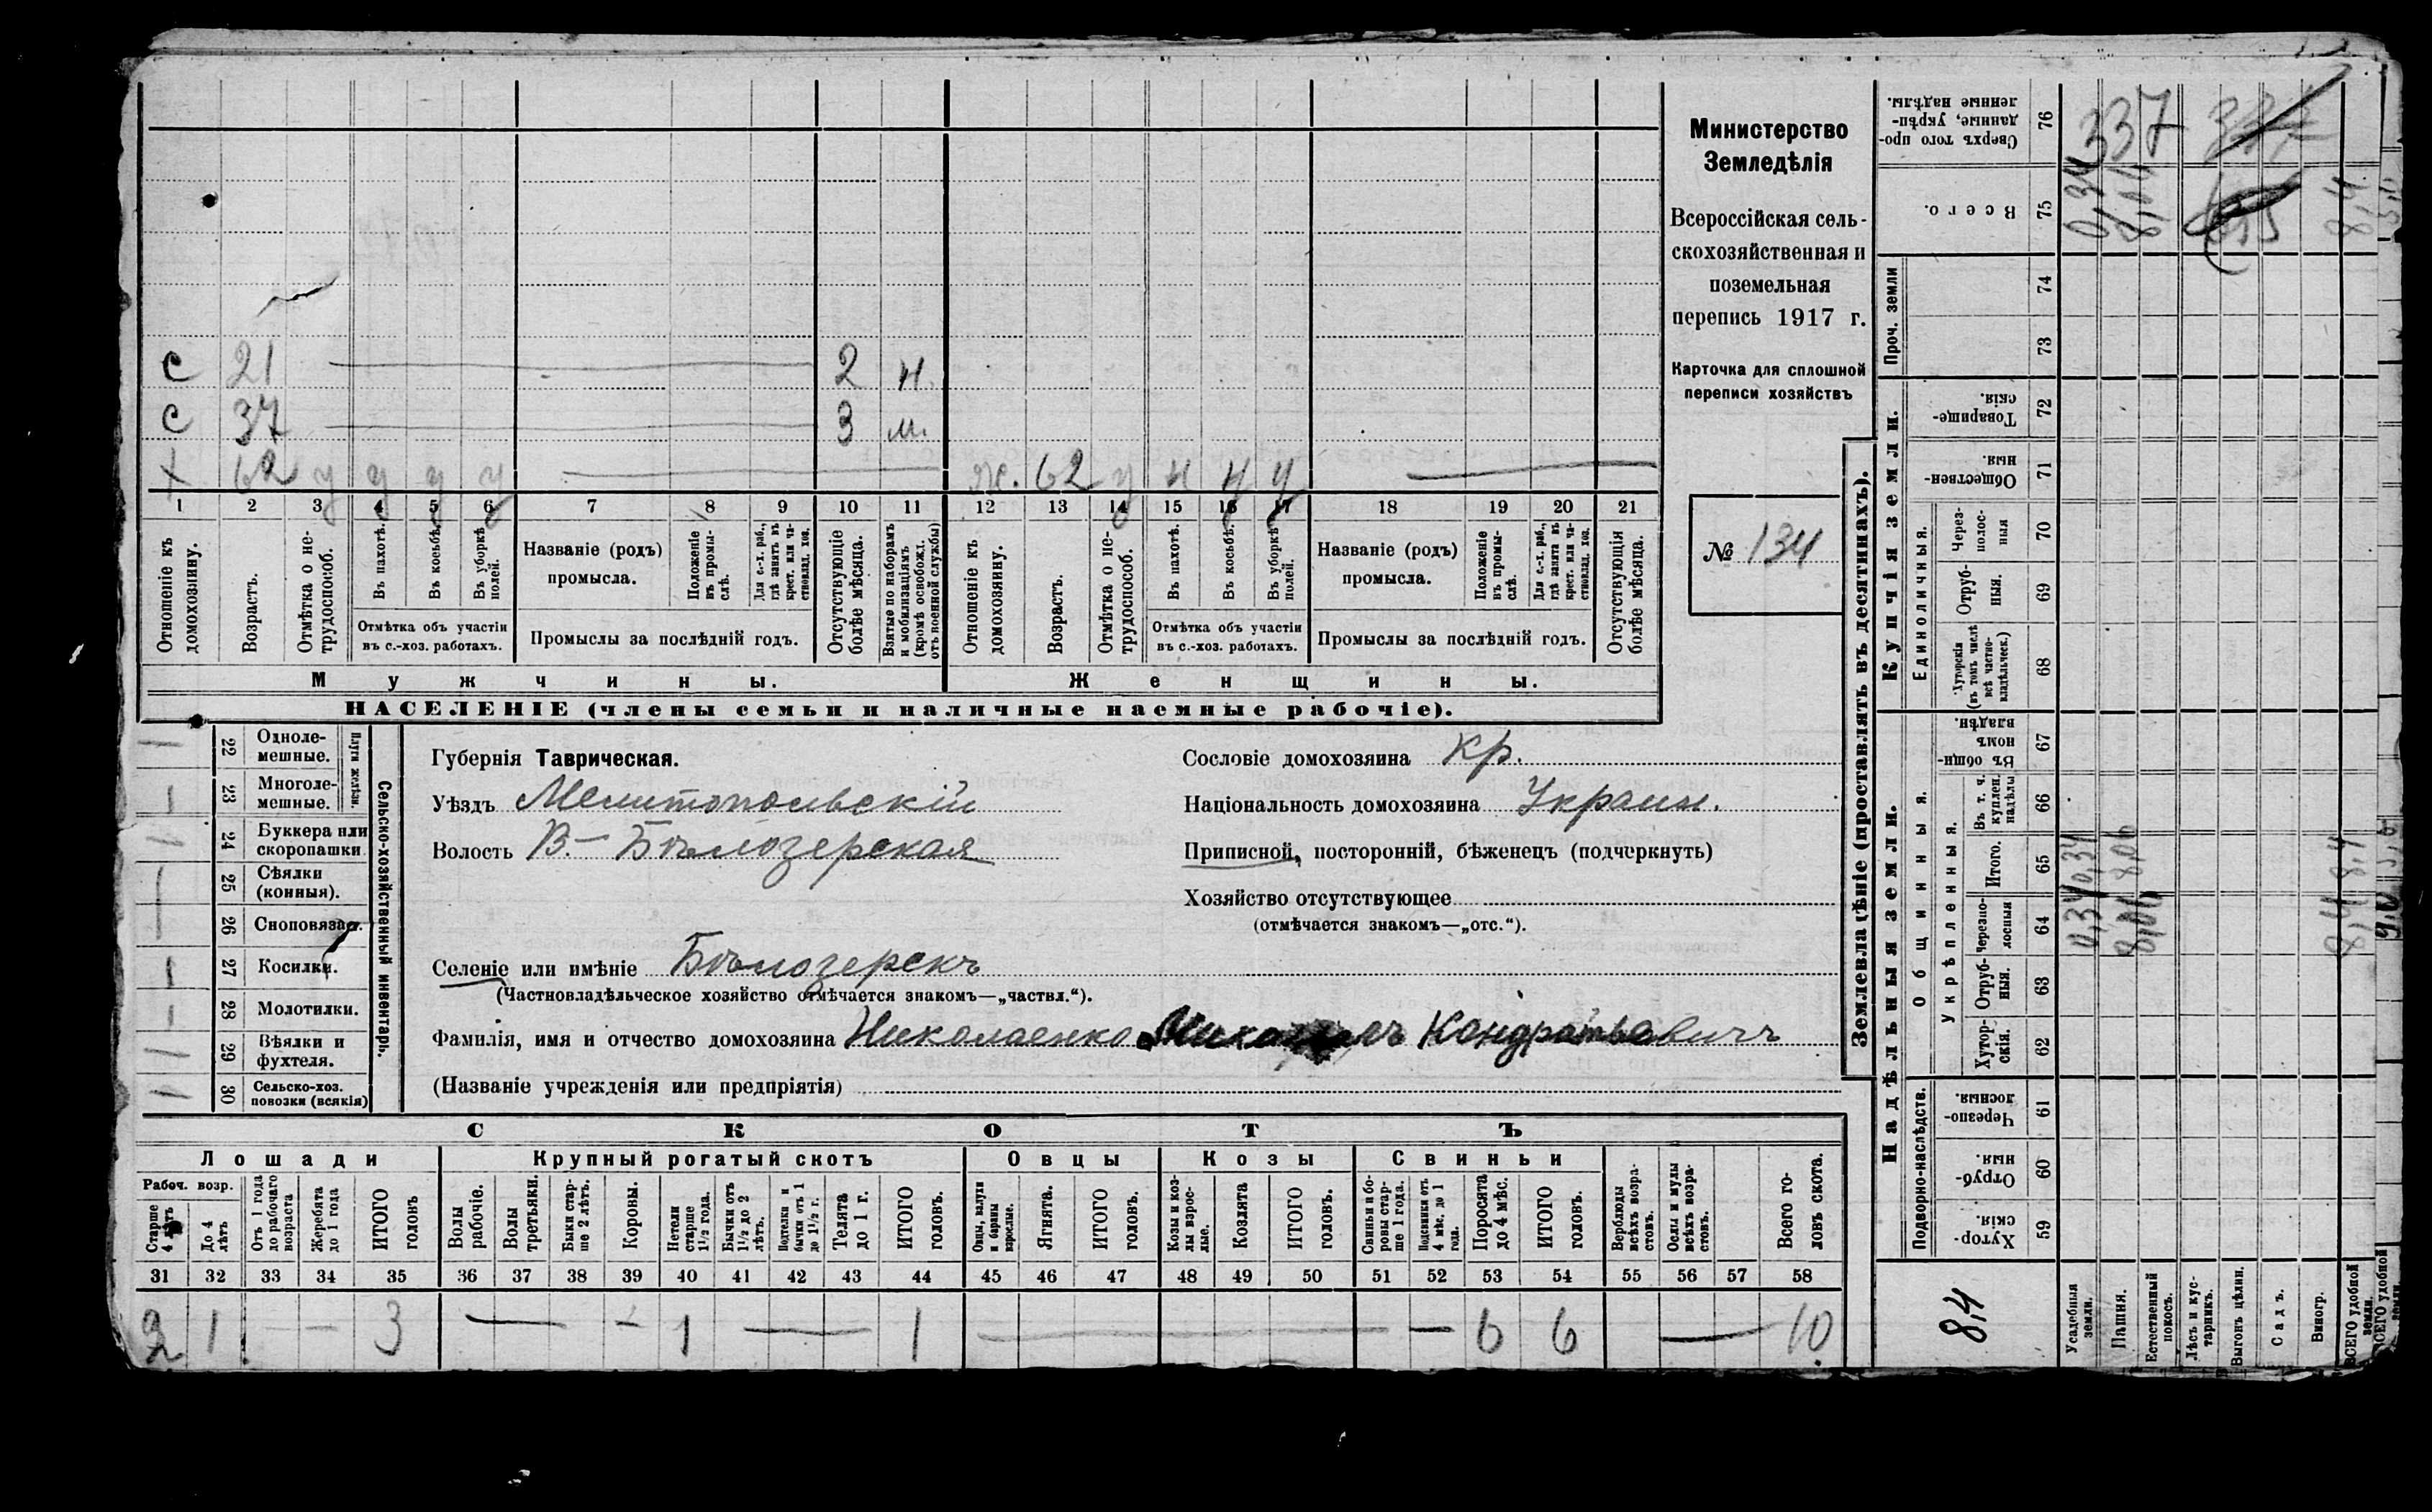 Министерство
Земледѣлія
Всероссійская сель-
скохозяйственная и
поземельная
перепись 1917 г.
Карточка для сплошной
переписи хозяйствъ
№ 134
с 21 2 н.
с 37 3 м.
х 62 у у у у ж. 62 у н у у
1 2 3 4 5 6 7 8 9 10 11 12 13 14 15 16 17 18 19 20 21
Отношеніе къ домохозяину.
Возрастъ.
Отмѣтка о не-трудоспособ.
Въ пахотѣ.
Въ косьбѣ.
Въ уборкѣ полей.
Отмѣтка объ участіи
въ с.-хоз. работахъ.
Названіе (родъ)
промысла.
Положеніе въ промы-слѣ.
Для с.-х. раб., гдѣ занятъ въ крест. или ча-стновлад. хоз.
Промыслы за послѣдній годъ.
Отсутствующіе болѣе мѣсяца.
Взятые по наборамъ и мобилизаціямъ (кромѣ освобожд. отъ военной службы)
Отношеніе къ домохозяину.
Возрастъ.
Отмѣтка о не-трудоспособ.
Въ пахотѣ.
Въ косьбѣ.
Въ уборкѣ полей.
Отмѣтка объ участіи
въ с.-хоз. работахъ.
Названіе (родъ)
промысла.
Положеніе въ промы-слѣ.
Для с.-х. раб., гдѣ занята въ крест. или ча-стновлад. хоз.
Промыслы за послѣдній годъ.
Отсутствующія болѣе мѣсяца.
Мужчины.
Женщины.
НАСЕЛЕНІЕ (члены семьи и наличные наемные рабочіе).
Сельско-хозяйственный инвентарь.
Плуги желѣзн.
1 22 Одноле-мешные.
1 23 Многоле-мешные.
1 24 Буккера или скоропашки
25 Сѣялки (конныя).
26 Сноповязал.
1 27 Косилки.
1 28 Молотилки.
1 29 Вѣялки и фухтеля.
1 30 Сельско-хоз. повозки (всякія)
Губернія Таврическая.
Уѣздъ Мелитопольскій
Волость В.-Бѣлозерская
Селеніе или имѣніе Бѣлозерскъ
(Частновладѣльческое хозяйство отмѣчается знакомъ—„частвл.“).
Фамилія, имя и отчество домохозяина Николаенко Кондратьевичъ
(Названіе учрежденія или предпріятія)
Сословіе домохозяина кр.
Національность домохозяина Украин.
Приписной, посторонній, бѣженецъ (подчеркнуть)
Хозяйство отсутствующее
(отмѣчается знакомъ—„отс.“).
СКОТЪ
Лошади Крупный рогатый скотъ Овцы Козы Свиньи
Рабоч. возр.
Старше 4 лѣтъ
До 4 лѣтъ
Отъ 1 года до рабочаго возраста
Жеребята до 1 года
ИТОГО головъ
Волы рабочіе.
Волы третьяки.
Быки стар-ше 2 лѣтъ.
Коровы.
Нетели старше 1½ года.
Бычки отъ 1½ до 2 лѣтъ.
Подтелки и бычки отъ 1 до 1½ г.
Телята до 1 г.
ИТОГО головъ.
Овцы, валухи и бараны взрослые.
Ягнята.
ИТОГО головъ.
Козы и коз-лы взрос-лые.
Козлята
ИТОГО головъ.
Свиньи и бо-ровы стар-ше 1 года.
Подсвинки отъ 4 мѣс. до 1 года.
Поросята до 4 мѣс.
ИТОГО головъ.
Верблюды всѣхъ возра-стовъ.
Ослы и мулы всѣхъ возра-стовъ.
Всего го-ловъ скота.
31 32 33 34 35 36 37 38 39 40 41 42 43 44 45 46 47 48 49 50 51 52 53 54 55 56 57 58
2 1 — 3 — — 1 — 1 — — 6 6 — 10
Землевладѣніе (проставлять въ десятинахъ).
Надѣльныя земли.
Купчія земли.
Проч. земли
Подворно-наслѣдств.
Общинныя.
Укрѣпленныя.
Единоличныя.
Хутор-скія 59
Отруб-ныя. 60
Черезпо-лосныя. 61
Хутор-скія. 62
Отруб-ныя. 63
Черезпо-лосныя 64
Итого. 65
Въ т. ч. куплен. надѣлы 66
Въ общи-номъ владѣн. 67
Хуторскія (въ томъ числѣ всѣ частно-владѣльческ.) 68
Отруб-ныя. 69
Через-полос-ныя 70
Обществен-ныя. 71
Товарище-скія. 72
73
74
Всего. 75
Сверхъ того про-данные, укрѣп-ленные надѣлы. 76
8,4
Усадебныя земли. 0,34 0,34 0,34
Пашня. 8,06 8,06
Естественный покосъ.
Лѣсъ и кус-тарникъ.
Выгонъ цѣлин.
Садъ.
Виногр.
ВСЕГО удобной земли. 8,4 8,4 8,4
337